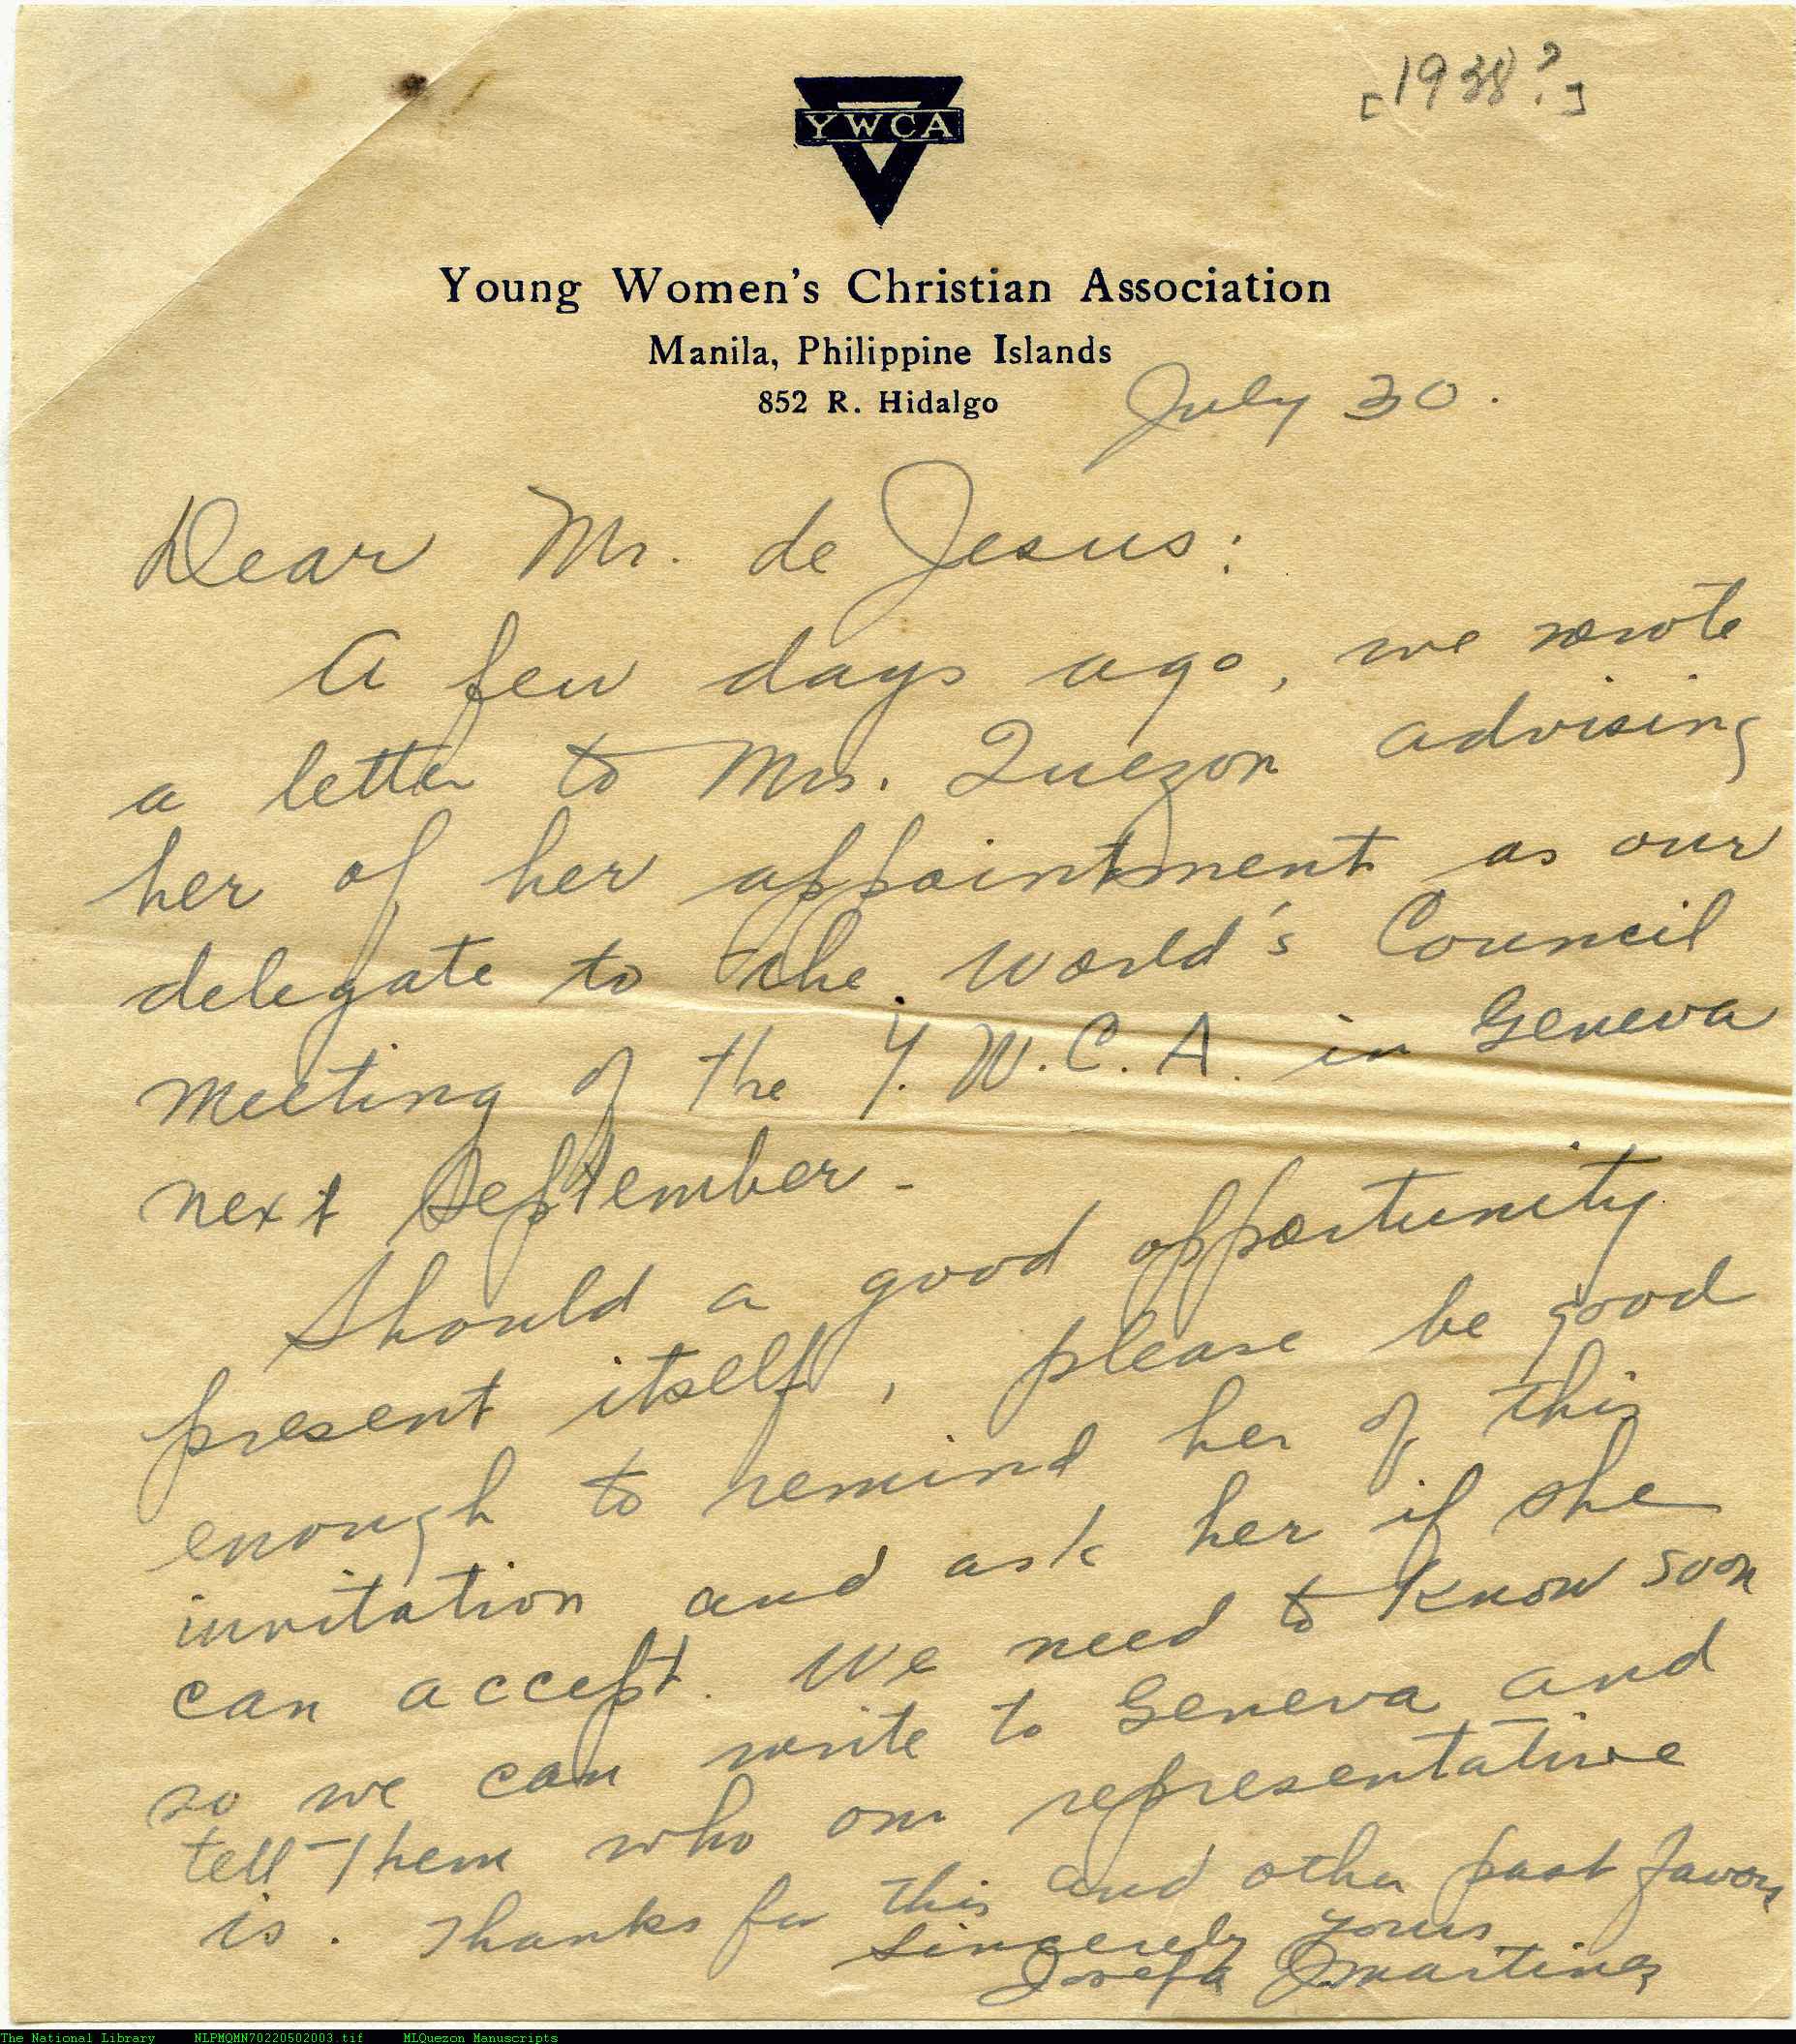 [1938?]
YWCA
Young Women's Christian Association
Manila, Philippine Islands
852 R. Hidalgo
July 30.
Dear Mr. de Jesus:
A few days ago, we wrote
a letter to Mrs. Quezon advising
her of her appointment as our
delegate to the World's Council
meeting of the Y.W.C.A. in Geneva
next September.
Should a good opportunity
present itself, please be good
enough to remind her of this
invitation and ask her if she
can accept. We need to know soon
so we can write to Geneva and
tell them who our representative
is. Thanks for this and other past favors
Sincerely yours
Josefa J Martinez
The National Library NLPMQMN70220502003.tif MLQuezon Manuscripts